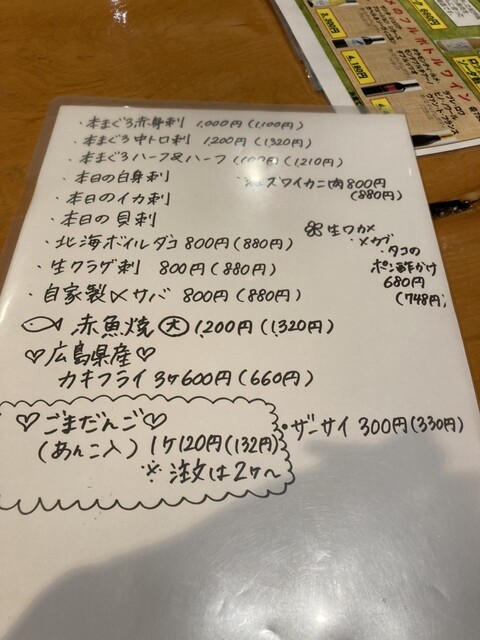 ・本まぐろ赤身刺 1,000円(1,100円)
・本まぐろ中トロ刺 1,200円(1,320円)
・本まぐろハーフ&ハーフ 1,100円(1,210円)
・本日の白身刺
ズワイカニ肉800円
(880円)
・本日のイカ刺
・本日の貝刺
・北海ボイルダコ 800円(880円)
・生クラゲ刺 800円(880円)
・自家製〆サバ 800円(880円)
生ワカメ
・メカブ
・タコの
ポン酢かけ
680円
(748円)
赤魚焼 大 1,200円(1,320円)
♡広島県産♡
カキフライ 3ケ600円(660円)
♡ごまだんご♡
(あんこ入) 1ケ120円(132円)
※注文は2ケ〜
・ザーサイ 300円(330円)
フルボトルワイン
3,300円
4,180円